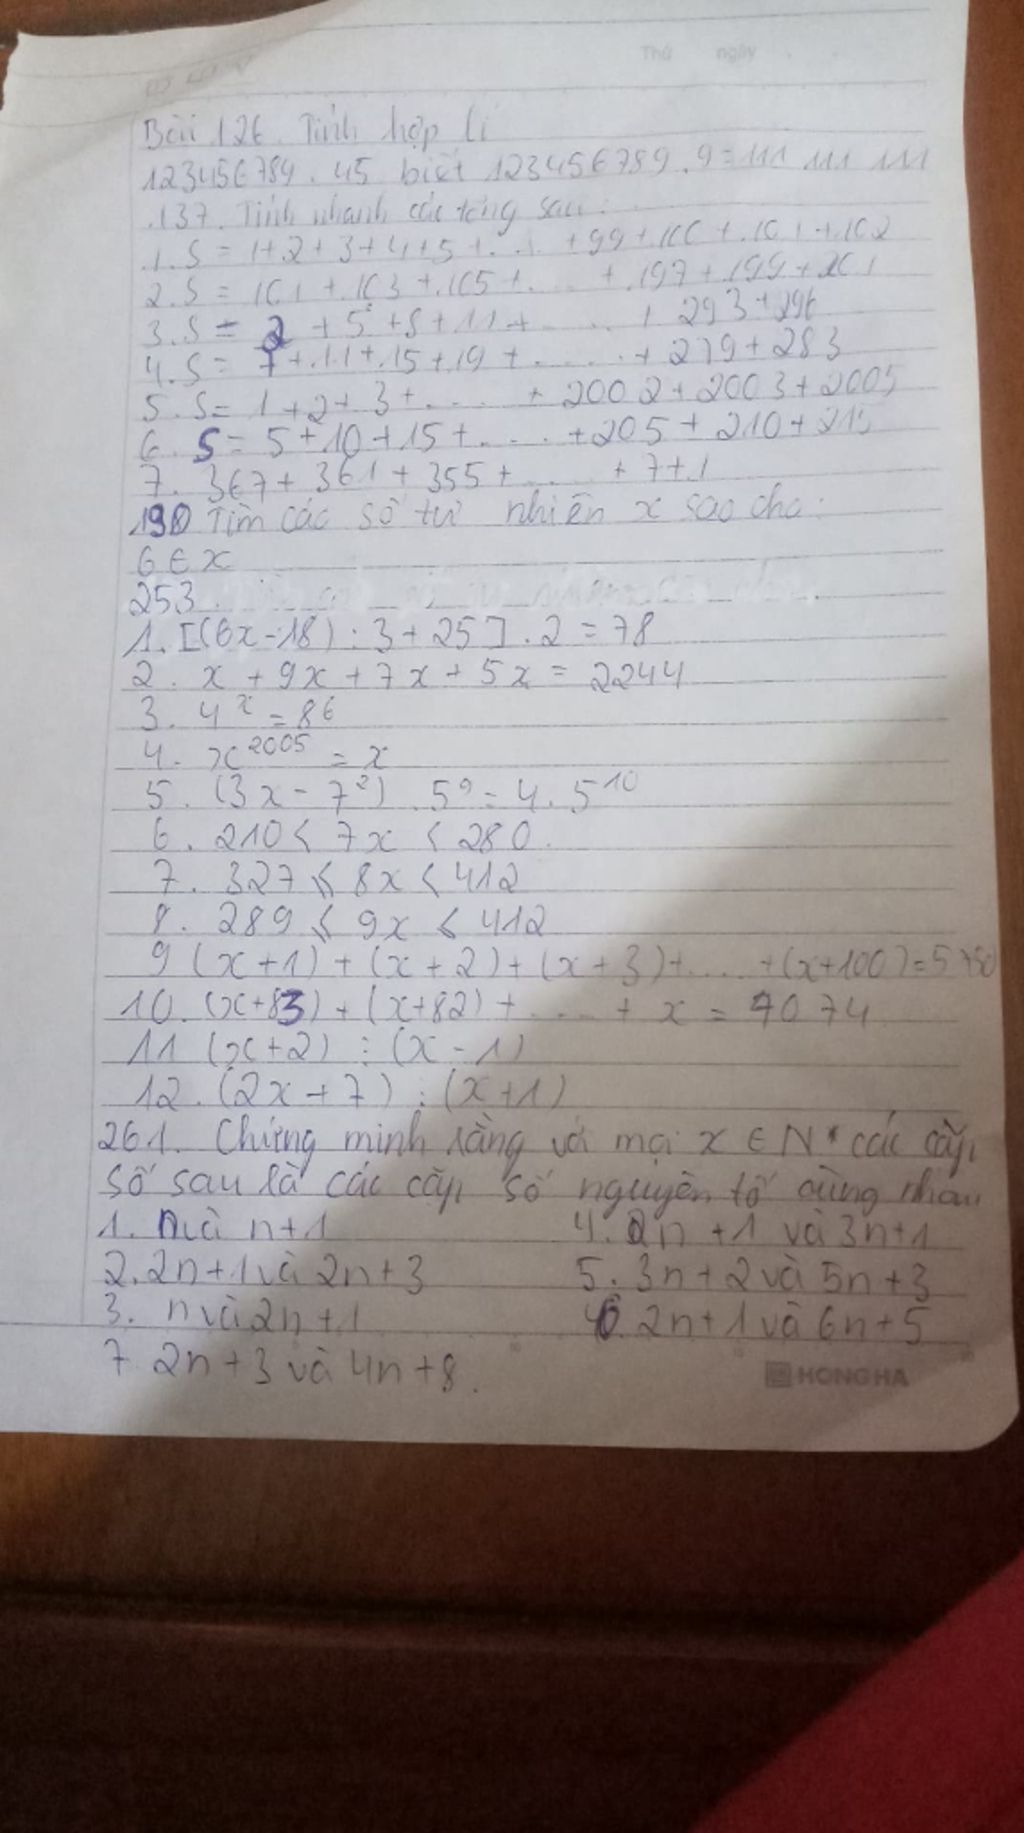 Thứ ngày
Bài 126. Tính hợp lí
123456789.45 biết 123456789.9=111 111 111
.137. Tính nhanh các tổng sau:
.1.S=1+2+3+4+5+...+99+100+.101+102
2.S=101+.103+.105+....+.197+.199+201
3.S=2+5+8+11+......+293+296
4.S=7+.11+.15+19+......+279+283
5.S=1+2+3+....+2002+2003+2005
6.S=5+10+15+....+205+210+215
7. 367+361+355+....+7+1
198 Tìm các số tự nhiên x sao cho:
6∈x
253.
1.[(6x-18):3+25].2=78
2. x+9x+7x+5x=2244
3. 4^x=86
4. x^2005=x
5. (3x-7^2).5^9=4.5^10
6. 210<7x<280.
7. 327≤8x<412
8. 289≤9x≤412
9 (x+1)+(x+2)+(x+3)+....+(x+100)=5750
10.(x+83)+(x+82)+....+x=7074
11 (x+2)⋮(x-1)
12.(2x+7)⋮(x+1)
261. Chứng minh rằng với mọi x∈N* các cặp
số sau là các cặp số nguyên tố cùng nhau
1. n và n+1 4. 2n+1 và 3n+1
2. 2n+1 và 2n+3 5. 3n+2 và 5n+3
3. n và 2n+1 6. 2n+1 và 6n+5
7 2n+3 và 4n+8.
HONG HA